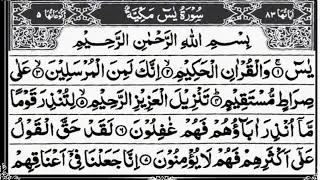 اٰيَاتُهَا ٨٣ سُوْرَةُ يٰسٓ مَكِّيَّةٌ رُكُوْعَاتُهَا ٥
بِسْمِ اللّٰهِ الرَّحْمٰنِ الرَّحِيْمِ
يٰسٓ ۝١ وَالْقُرْاٰنِ الْحَكِيْمِ ۝٢ اِنَّكَ لَمِنَ الْمُرْسَلِيْنَ ۝٣ عَلٰى
صِرَاطٍ مُّسْتَقِيْمٍ ۝٤ تَنْزِيْلَ الْعَزِيْزِ الرَّحِيْمِ ۝٥ لِتُنْذِرَ قَوْمًا
مَّاۤ اُنْذِرَ اٰبَآؤُهُمْ فَهُمْ غٰفِلُوْنَ ۝٦ لَقَدْ حَقَّ الْقَوْلُ
عَلٰٓى اَكْثَرِهِمْ فَهُمْ لَا يُؤْمِنُوْنَ ۝٧ اِنَّا جَعَلْنَا فِيْۤ اَعْنَاقِهِمْ